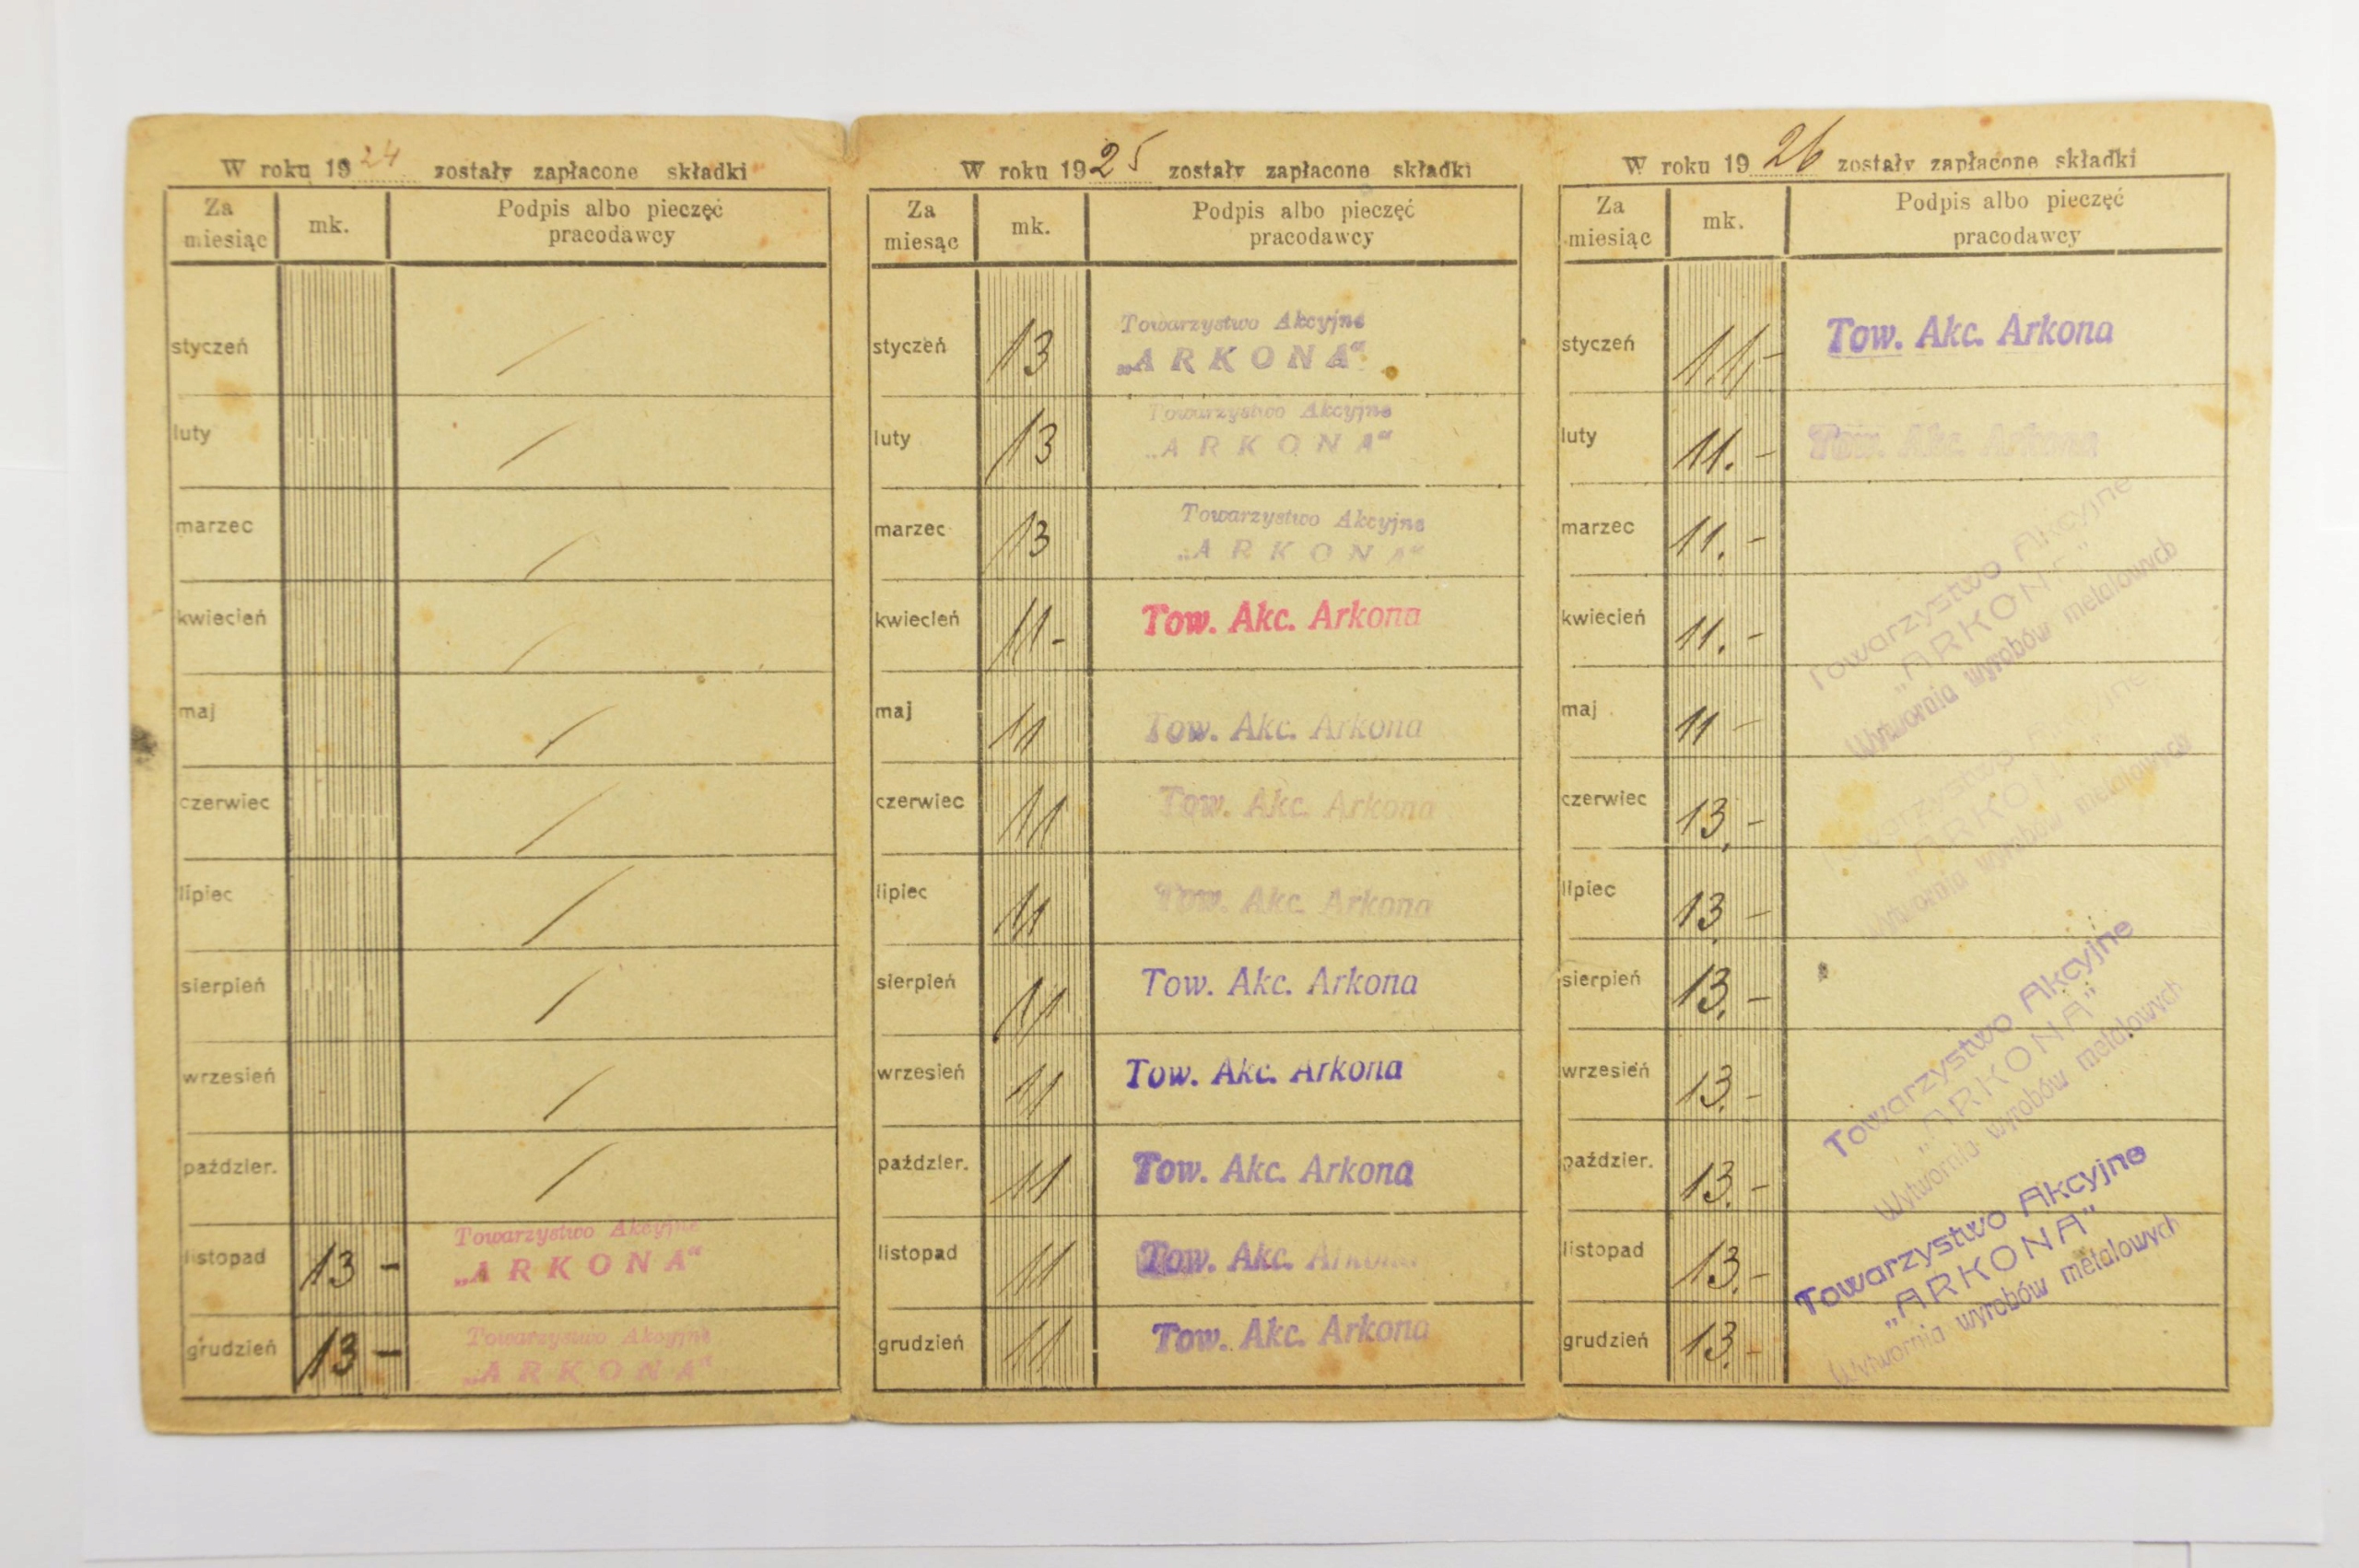 W roku 1924 zostały zapłacone składki
Za miesiąc mk. Podpis albo pieczęć pracodawcy
styczeń
luty
marzec
kwiecień
maj
czerwiec
lipiec
sierpień
wrzesień
paździer.
listopad 13 - Towarzystwo Akcyjne
„ARKONA“
grudzień 13 - Towarzystwo Akcyjne
„ARKONA“
W roku 1925 zostały zapłacone składki
Za miesąc mk. Podpis albo pieczęć pracodawcy
styczeń 13 Towarzystwo Akcyjne
„ARKONA“
luty 13 Towarzystwo Akcyjne
„ARKONA“
marzec 13 Towarzystwo Akcyjne
„ARKONA“
kwiecień 11- Tow. Akc. Arkona
maj 11 Tow. Akc. Arkona
czerwiec 11 Tow. Akc. Arkona
lipiec 11 Tow. Akc. Arkona
sierpień 11 Tow. Akc. Arkona
wrzesień 11 Tow. Akc. Arkona
paździer. 11 Tow. Akc. Arkona
listopad 11 Tow. Akc. Arkona
grudzień 11 Tow. Akc. Arkona
W roku 1926 zostały zapłacone składki
Za miesiąc mk. Podpis albo pieczęć pracodawcy
styczeń 11,- Tow. Akc. Arkona
luty 11.- Tow. Akc. Arkona
marzec 11.-
kwiecień 11.-
Towarzystwo Akcyjne
„ARKONA”
Wytwornia wyrobów metalowych
maj 11 -
czerwiec 13.-
Towarzystwo Akcyjne
„ARKONA”
Wytwornia wyrobów metalowych
lipiec 13 -
sierpień 13.-
wrzesień 13.-
Towarzystwo Akcyjne
„ARKONA”
Wytwornia wyrobów metalowych
paździer. 13.-
listopad 13.-
Towarzystwo Akcyjne
„ARKONA”
Wytwornia wyrobów metalowych
grudzień 13.-